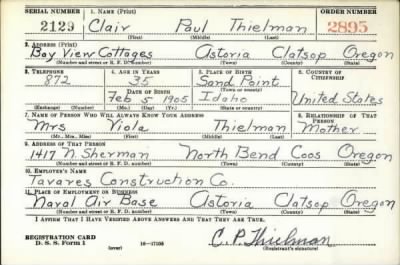 SERIAL NUMBER 1. NAME (Print) ORDER NUMBER
2129 Clair Paul Thielman 2895
(First) (Middle) (Last)
2. ADDRESS (Print)
Bay View Cottages Astoria Clatsop Oregon
(Number and street or R. F. D. number) (Town) (County) (State)
3. TELEPHONE 4. AGE IN YEARS 5. PLACE OF BIRTH 6. COUNTRY OF CITIZENSHIP
872 35 Sand Point
DATE OF BIRTH (Town or county)
Feb 5 1905 Idaho United States
(Exchange) (Number) (Mo.) (Day) (Yr.) (State or country)
7. NAME OF PERSON WHO WILL ALWAYS KNOW YOUR ADDRESS 8. RELATIONSHIP OF THAT PERSON
Mrs Viola Thielman Mother
(Mr., Mrs., Miss) (First) (Middle) (Last)
9. ADDRESS OF THAT PERSON
1417 N. Sherman North Bend Coos Oregon
(Number and street or R. F. D. number) (Town) (County) (State)
10. EMPLOYER'S NAME
Tavares Construction Co.
11. PLACE OF EMPLOYMENT OR BUSINESS
Naval Air Base Astoria Clatsop Oregon
(Number and street or R. F. D. number) (Town) (County) (State)
I AFFIRM THAT I HAVE VERIFIED ABOVE ANSWERS AND THAT THEY ARE TRUE.
REGISTRATION CARD
D. S. S. Form 1 (over) 16—17105 C. P. Thielman
(Registrant's signature)